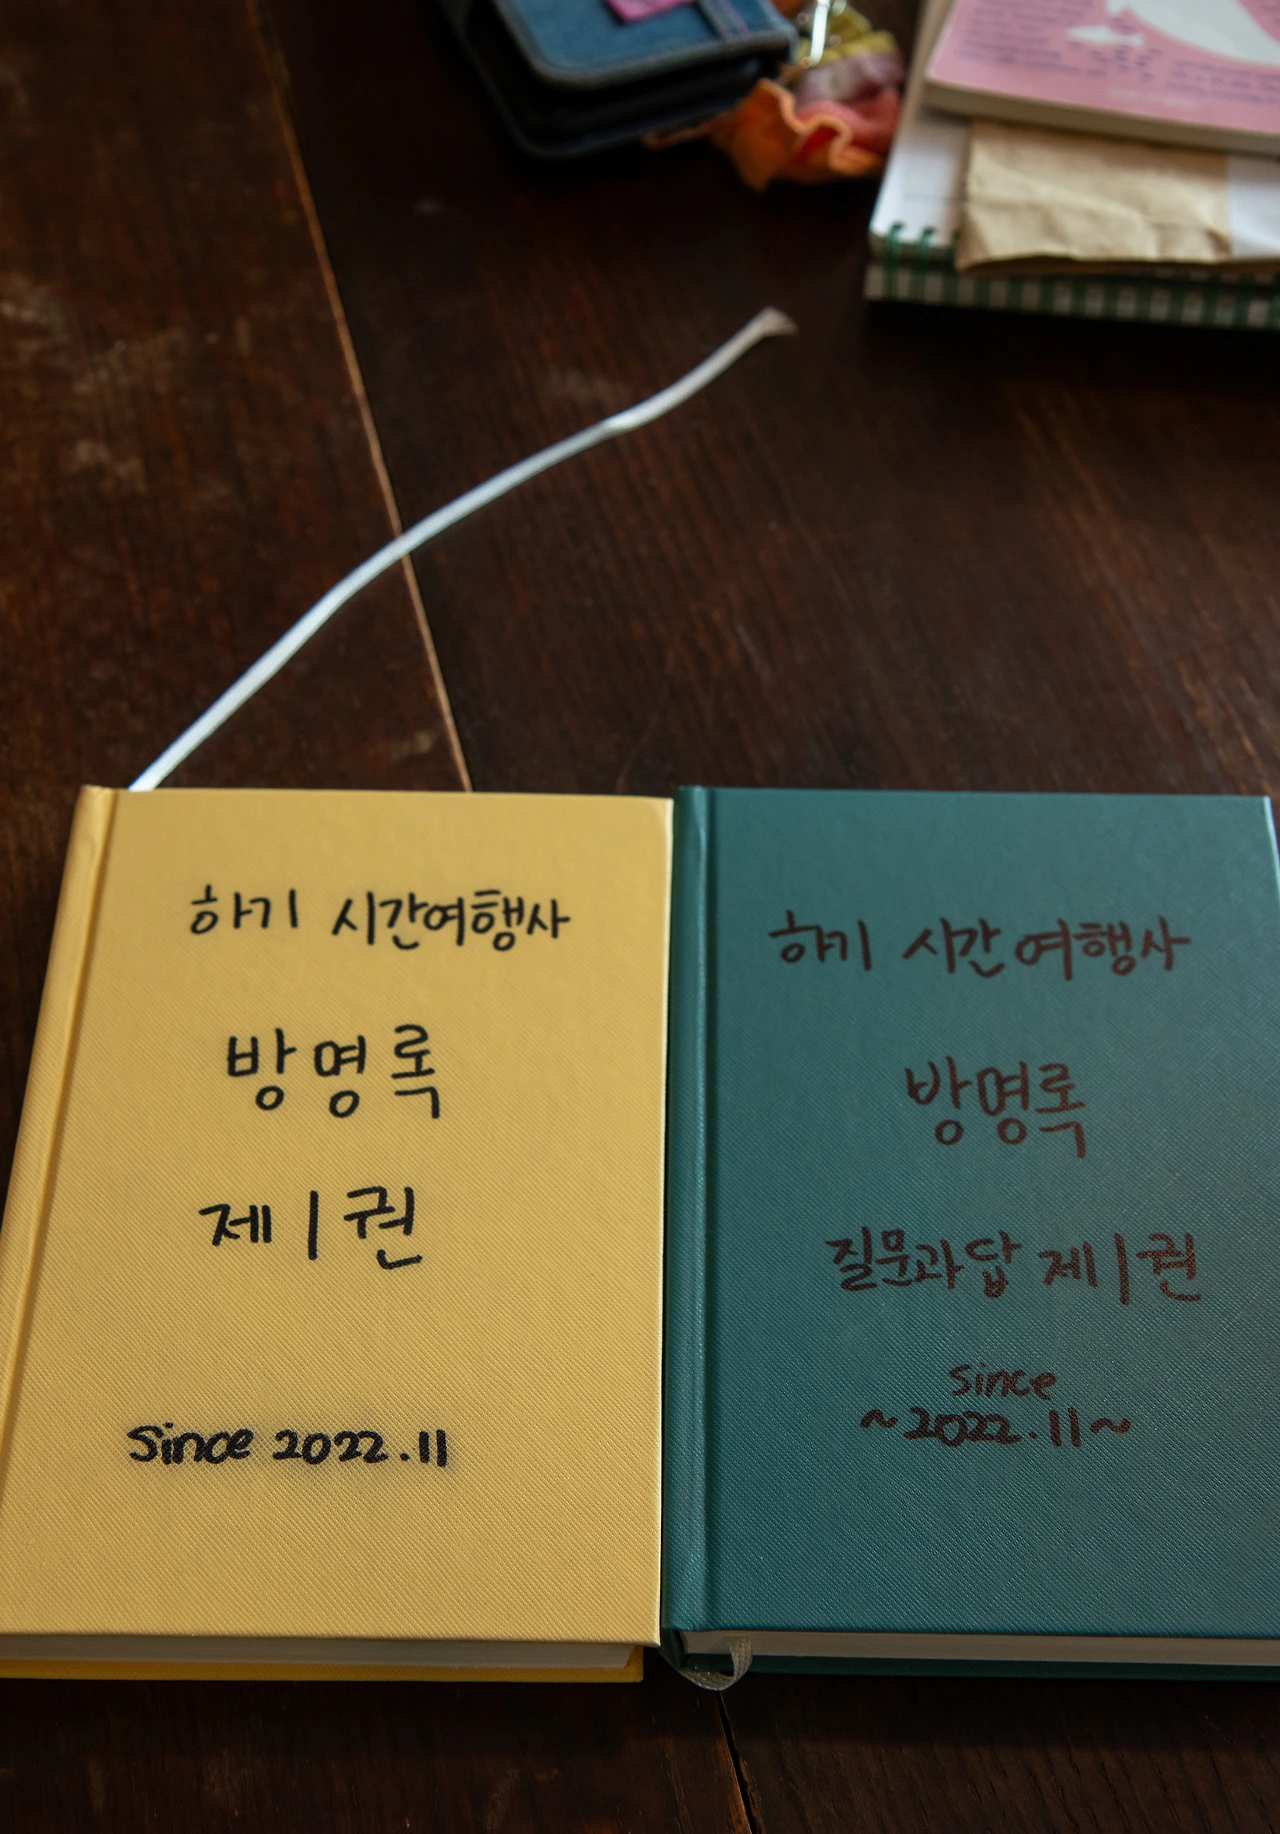 하기 시간여행사
방명록
제1권
Since 2022.11
하기 시간여행사
방명록
질문과답 제1권
Since
~2022.11~